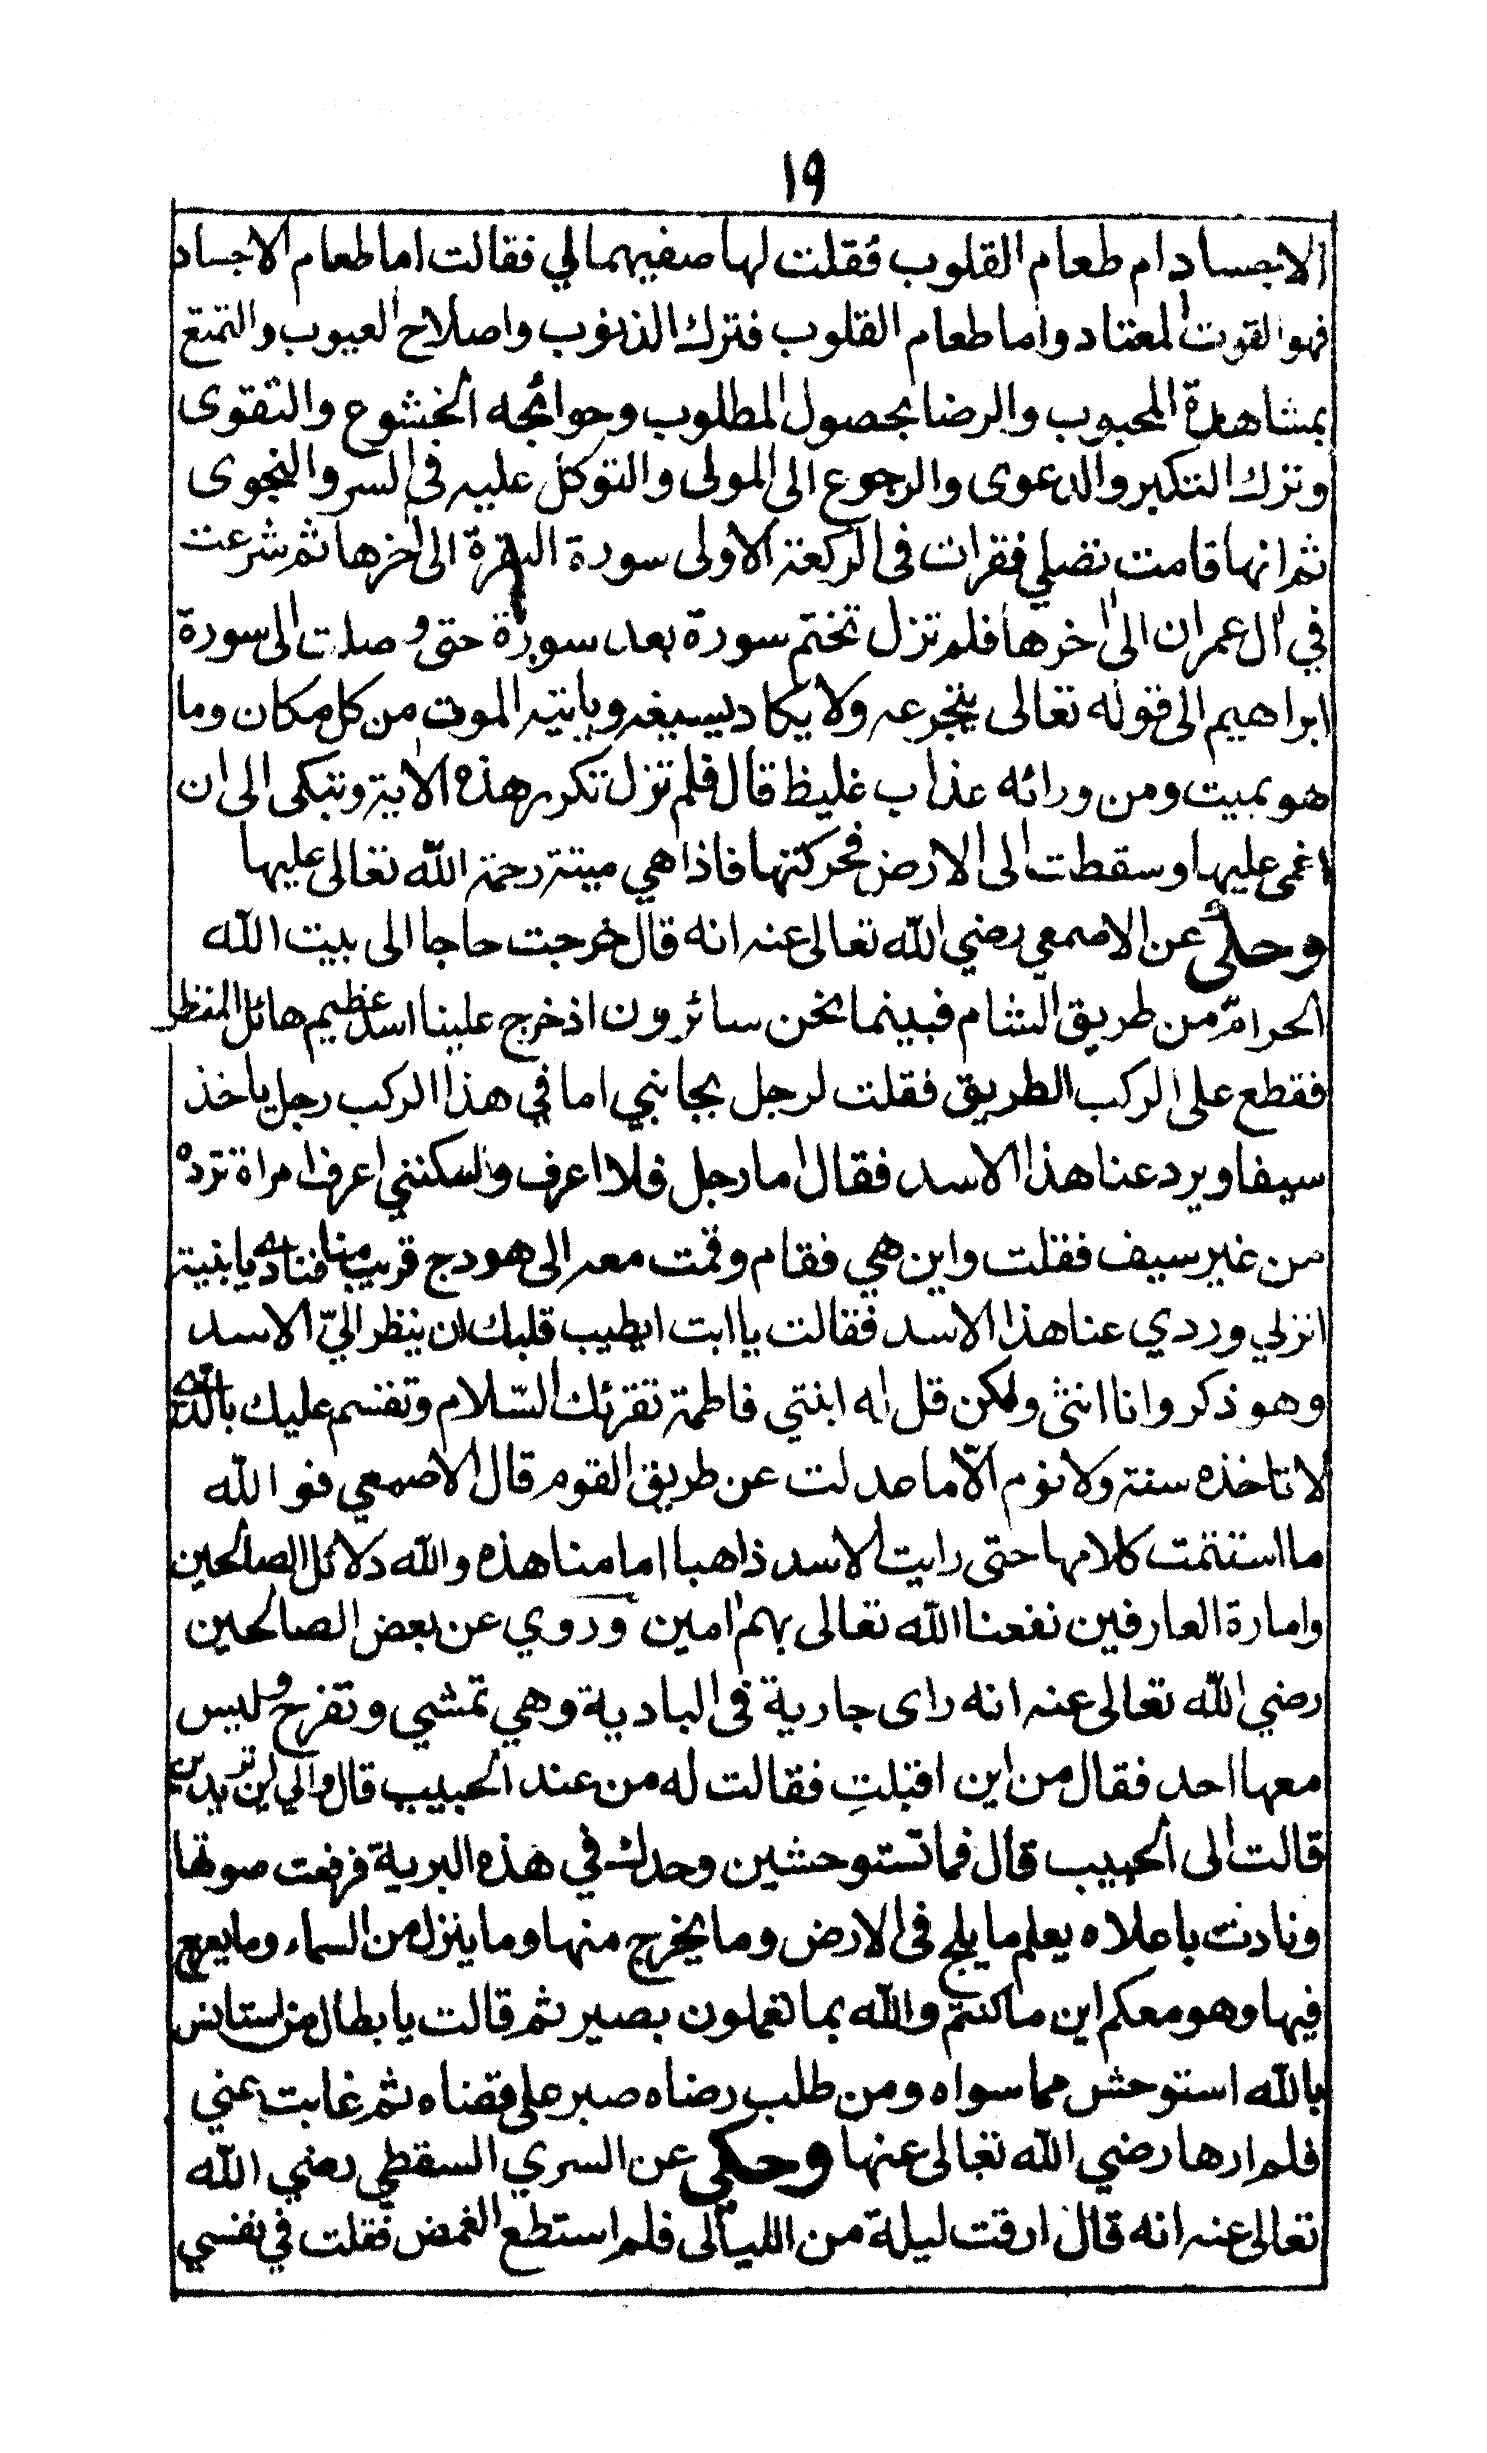 ١٩
الاجساد ام طعام القلوب فقلت لها صفيهما لي فقالت اما طعام الاجساد
فهو القوت المعتاد واما طعام القلوب فترك الذنوب واصلاح العيوب والتمتع
بمشاهدة المحبوب والرضا بحصول المطلوب وحوائجه الخشوع والتقوى
وترك التكبر والدعوى والرجوع الى المولى والتوكل عليه فى السر والنجوى
ثم انها قامت تصلي فقرات فى الركعة الاولى سورة البقرة الى اخرها ثم شرعت
في ال عمران الى اخرها فلم تزل تختم سورة بعد سورة حتى وصلت الى سورة
ابراهيم الى قوله تعالى يتجرعه ولا يكاد يسيغه ويايته الموت من كل مكان وما
هو بميت ومن ورائه عذاب غليظ قال فلم تزل تكرر هذه الاية وتبكى الى ان
اغمى عليها وسقطت الى الارض فحركتها فاذا هي ميتة رحمة الله تعالى عليها
وحكى عن الاصمعي رضي الله تعالى عنه انه قال خرجت حاجا الى بيت الله
الحرام من طريق الشام فبينما نحن سائرون اذ خرج علينا اسد عظيم هائل المنظر
فقطع على الركب الطريق فقلت لرجل بجانبي اما في هذا الركب رجل ياخذ
سيفا ويرد عنا هذا الاسد فقال اما رجل فلا اعرف ولكنني اعرف امراة ترده
من غير سيف فقلت واين هي فقام وقمت معه الى هودج قريب منا فنادى يا بنية
انزلي وردي عنا هذا الاسد فقالت يا ابت ايطيب قلبك ان ينظر اليّ الاسد
وهو ذكر وانا انثى ولكن قل له ابنتي فاطمة تقرئك السّلام وتقسم عليك بالذى
لا تاخذه سنة ولا نوم الّا ما عدلت عن طريق القوم قال الاصمعي فو الله
ما استتمت كلامها حتى رايت الاسد ذاهبا امامنا هذه والله دلائل الصالحين
وامارة العارفين نفعنا الله تعالى بهم امين وروي عن بعض الصالحين
رضي الله تعالى عنه انه راى جارية فى البادية وهي تمشي وتفرح وليس
معها احد فقال من اين اقبلتِ فقالت له من عند الحبيب قال والي اين تريدين
قالت الى الحبيب قال فما تستوحشين وحدك في هذه البرية فرفعت صوتها
ونادت باعلاه يعلم ما يلج فى الارض وما يخرج منها وما ينزل من السماء وما يعرج
فيها وهو معكم اين ما كنتم والله بما تعملون بصير ثم قالت يا بطال من استانس
بالله استوحش مما سواه ومن طلب رضاه صبر على قضاه ثم غابت عني
فلم ارها رضي الله تعالى عنها وحكى عن السري السقطي رضي الله
تعالى عنه انه قال ارقت ليلة من الليالى فلم استطع الغمض فقلت في نفسي